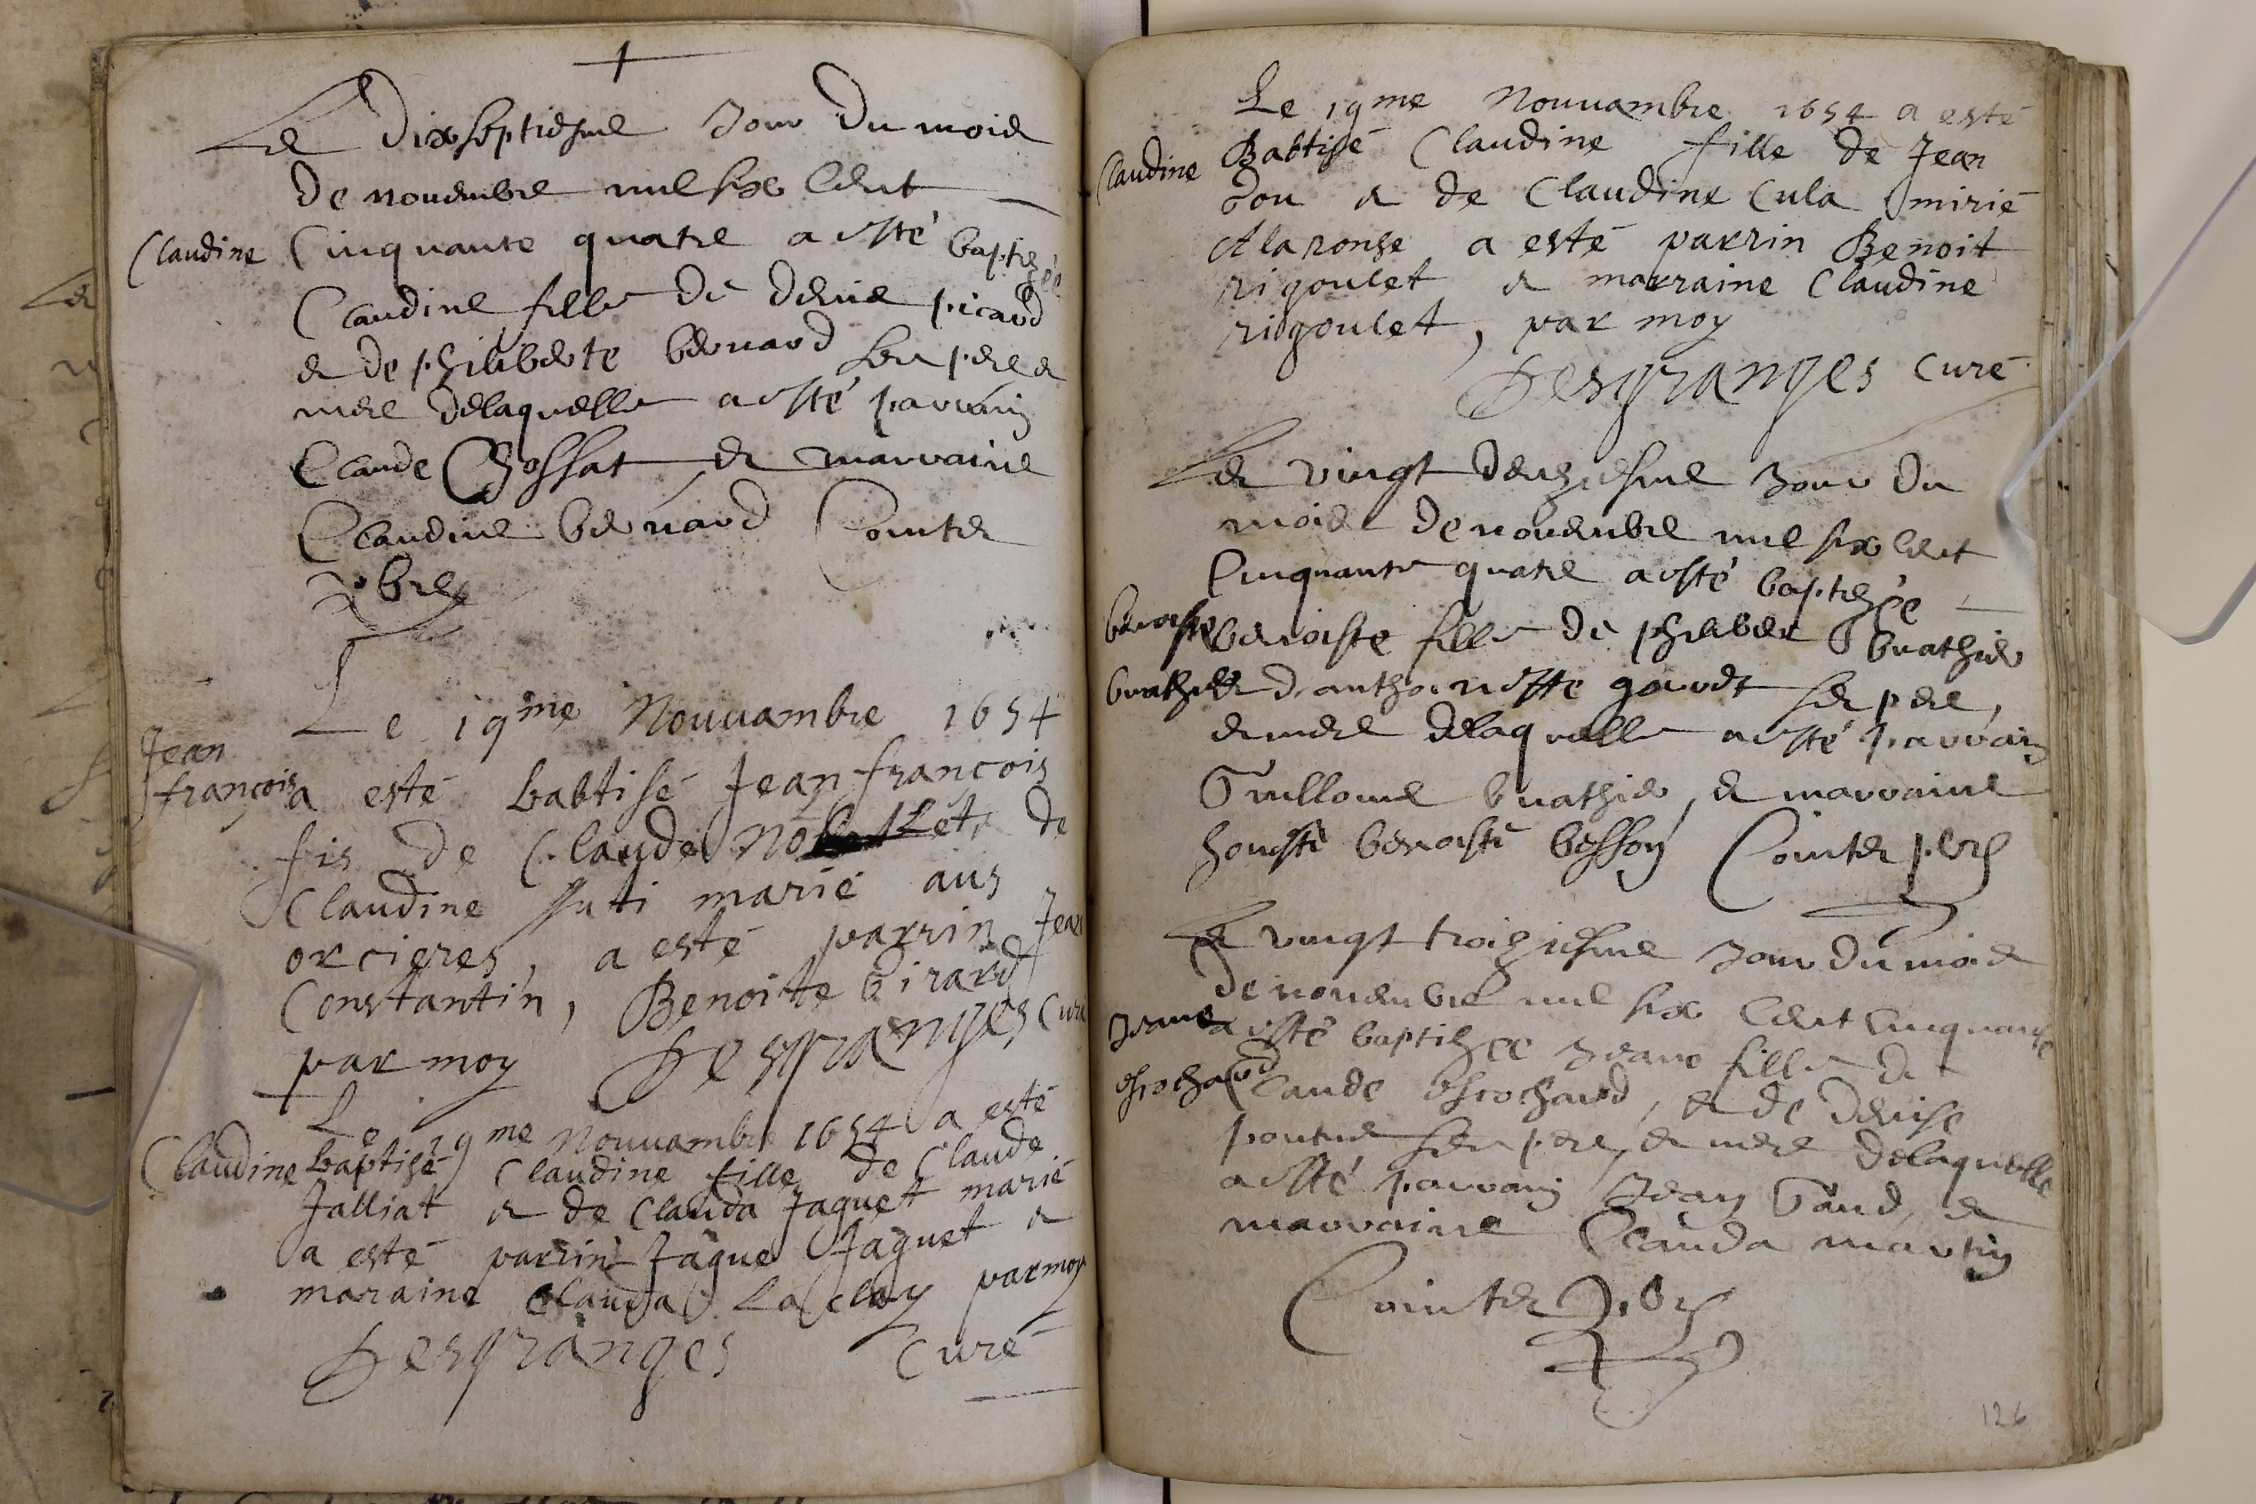 Le dixseptiesme Jour du mois
de novembre mil six cent
Claudine
Cinquante quatre a esté baptizée
Claudine fille de denis picard
et de philiberte bernard ses pere et
mere de laquelle a esté parrain
Claude Chossat et marraine
Claudine bernard Cointer
pbre
Le 19me Nouuambre 1654
Jean
françois
a esté babtisé Jean françois
fis de Claude de
Claudine Juti marié aus
orcieres, a esté parrin Jean
Constantin, Benoitte Girard
par moy Desgranges Curé
Le 19me Nouuambre 1654 a esté
Claudine
baptisé Claudine fille de Claude
Jalliat et de Clauda Jaquet marié
a esté parrin Jaque Jaquet et
maraine Clauda La clay par moy
Desgranges Curé
Le 19me Nouuambre 1654 a esté
Claudine
Babtisé Claudine fille de Jean
et de Claudine Cula mirié
A la ronse a esté parrin Benoit
rigoulet et marraine Claudine
rigoulet, par moy
Desgranges Curé
Le vingt deuziesme Jour du
mois de novembre mil six cent
Cinquante quatre a esté baptizée
benoiste
buathier
benoiste fille de philiber buathier
et d'anthoinette ses pere,
et mere de laquelle a esté parrain
Guillome buathier, et marraine
honeste benoiste besson Cointer pbre
Le vingt troiziesme Jour du mois
de novembre mil six cent Cinquante
Jeane
a esté baptizee Jeane fille de
Claude, et de denise
ses pere, et mere de laquelle
a esté parrain Jean, et
marraine Clauda martin
Cointer pbre
126